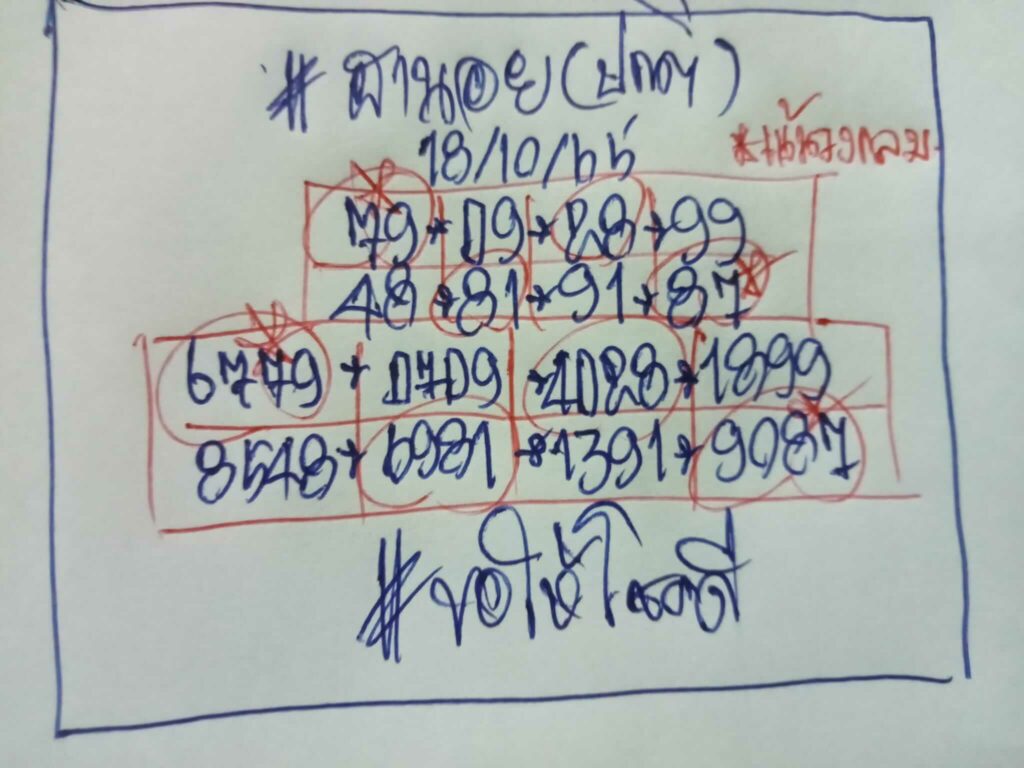 #ฮานอย(ปกติ)
18/10/65
*เน้นวงกลม
79*09*28*99
48*81*91*87
6779*0709*4028*1899
8548*6981*1391*9087
#ขอให้โชคดี